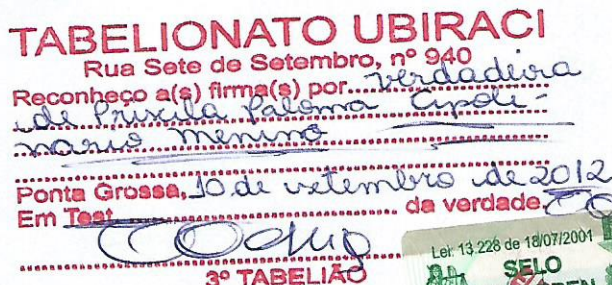 TABELIONATO UBIRACI
Rua Sete de Setembro, nº 940
Reconheço a(s) firma(s) por verdadeira
de Priscila Paloma Apoli-
nario Menino
Ponta Grossa, 10 de setembro de 2012
Em Test. da verdade.
3º TABELIÃO
Lei: 13.228 de 18/07/2001
SELO